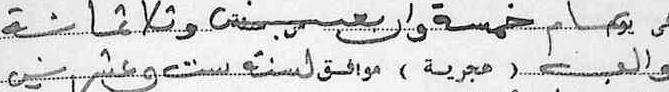 خمسة واربعين وثلاثمائة
والف (هجرية) موافق لسنة ست وعشرين